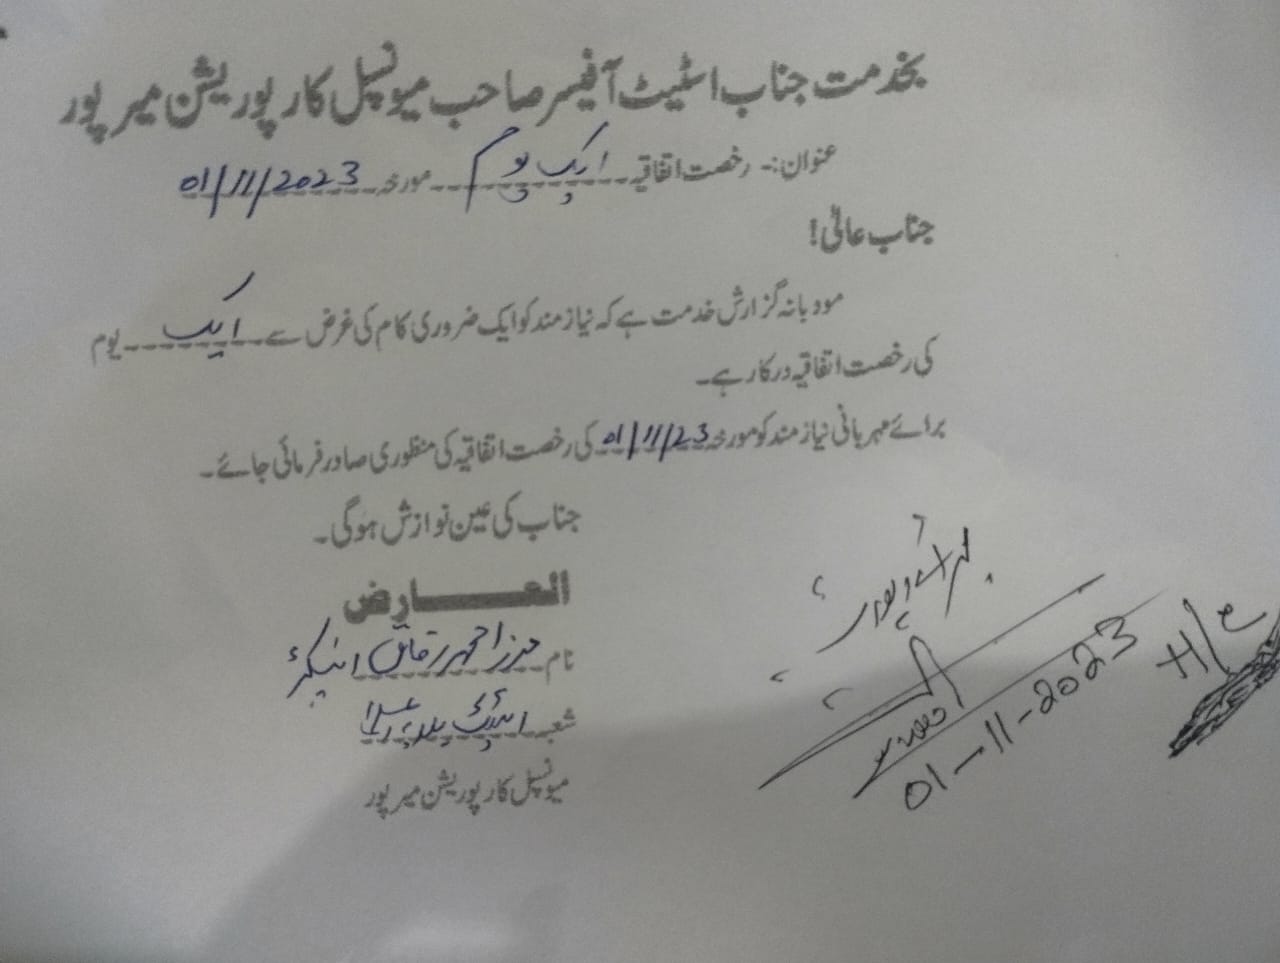 بخدمت جناب اسٹیٹ آفیسر صاحب میونسپل کارپوریشن میرپور
عنوان:۔ رخصت اتفاقیہ ایک یوم مورخہ 01/11/2023
جناب عالی!
مودبانہ گزارش خدمت ہے کہ نیاز مند کو ایک ضروری کام کی غرض سے ایک یوم
کی رخصت اتفاقیہ درکار ہے۔
برائے مہربانی نیاز مند کو مورخہ 01/11/23 کی رخصت اتفاقیہ کی منظوری صادر فرمائی جائے۔
جناب کی عین نوازش ہوگی۔
العارض
نام مرزا محمد انسپکٹر
شعبہ اسٹیٹ
میونسپل کارپوریشن میرپور
برائے رپورٹ
01-11-2023
H/C